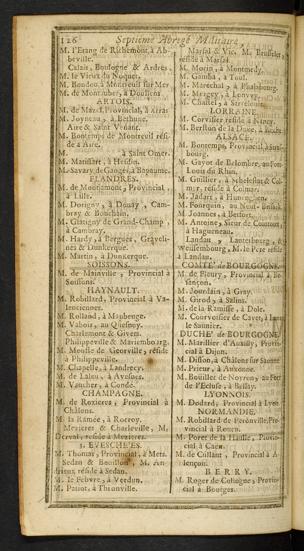 126 Septiéme Abregé Militaire,
M. l'Etang de Richemont, à Ab-
beville.
Calais, Boulogne & Ardres,
M. le Vieux du Noquet,
M. Bondou, à Montreuil sur Mer
M. de Montaubert, à Doullens
ARTOIS.
M. de Mazel, Provincial, à Arras
M. Joyneau, à Bethune,
Aire & Saint Venant.
M. Bontemps de Montreuil rési-
de à Aire.
M. à Saint Omer.
M. Manisart, à Hesdin.
M. Savary de Gangei, à Bapaume
FLANDRES.
M. de Montramont, Provincial,
à Lille.
M. Dorigny, à Douay, Cam-
bray & Bouchain.
M. Glatigny de Grand-Champ,
à Cambray.
M. Hardy, à Bergues, Graveli-
nes & Dunkerque.
M. Martin, à Dunkerque.
SOISSONS.
M. de Mainville, Provincial à
Soissons.
HAYNAULT.
M. Robillard, Provincial à Va-
lenciennes.
M. Rolland, à Maubeuge.
M. Vabois, au Quesnoy.
Charlemont & Givets.
Philippeville & Mariembourg.
M. Moussle de Georville, réside
à Philippeville.
M. Chapelle, à Landrecy.
M. de Lalau, à Avesnes.
M. Vaucher, à Condé.
CHAMPAGNE.
M. de Rozieres, Provincial à
Châlons.
M. la Ramée, à Rocroy.
Mezieres & Charleville, M.
Derval, réside à Mezieres.
3. EVESCHE'ES.
M. Thomas, Provincial, à Mets.
Sedan & Bouillon, M. An-
trieux, réside à Sedan.
M. le Febvre, à Verdun.
M. Pariot, à Thionville.
Marsal & Vic, M. Bruselet,
réside à Marsal.
M. Morin, à Montmedy.
M. Gamba, à Toul.
M. Marechal, à Phalsbourg.
M. à Longwy.
M. Chastel, à Sarrelouis.
LORRAINE.
M. Corvisier réside à Nancy.
M. Berston de la Duée, à
ALSACE.
M. Bontemps, Provincial à Stras-
bourg.
M. Gayot de Belombre, au Fort
Louis du Rhin.
M. Guillier, à Schelestat & Col-
mar, réside à Colmar.
M. Jadart, à Huninghen.
M. Fourquin, au Neuf-Brisack.
M. Joannes, à Betfort.
M. Antoine, Sieur de
à Haguenau.
Landau, Lauterbourg, &
Weissembourg, M. le Pere réside
à Landau.
COMTE' de BOURGOGNE.
M. de Fleury, Provincial à Be-
sançon.
M. Jourdain, à Gray.
M. Girod, à Salins.
M. de la Ramisse, à Dole.
M. Courvoisier de Cavet, à Lons
le Saunier.
DUCHE' de BOURGOGNE.
M. Marillier d'Auxilly, Provin-
cial à Dijon.
M. Disson, à Châlons sur Saonne
M. Prieur, à Auxonne.
M. Bouillet de Noyeren, au Fort
de l'Ecluse, à Bellay.
LYONNOIS.
M. Dodard, Provincial à Lyon
NORMANDIE.
M. Robillard de Peronville, Pro-
vincial à Rouen.
M. Poret de la Hausse, Provin-
cial, à Caen.
M. de Cullant, Provincial à A-
lençon.
BERRY.
M. Roger de Cologne, Provin-
cial à Bourges.